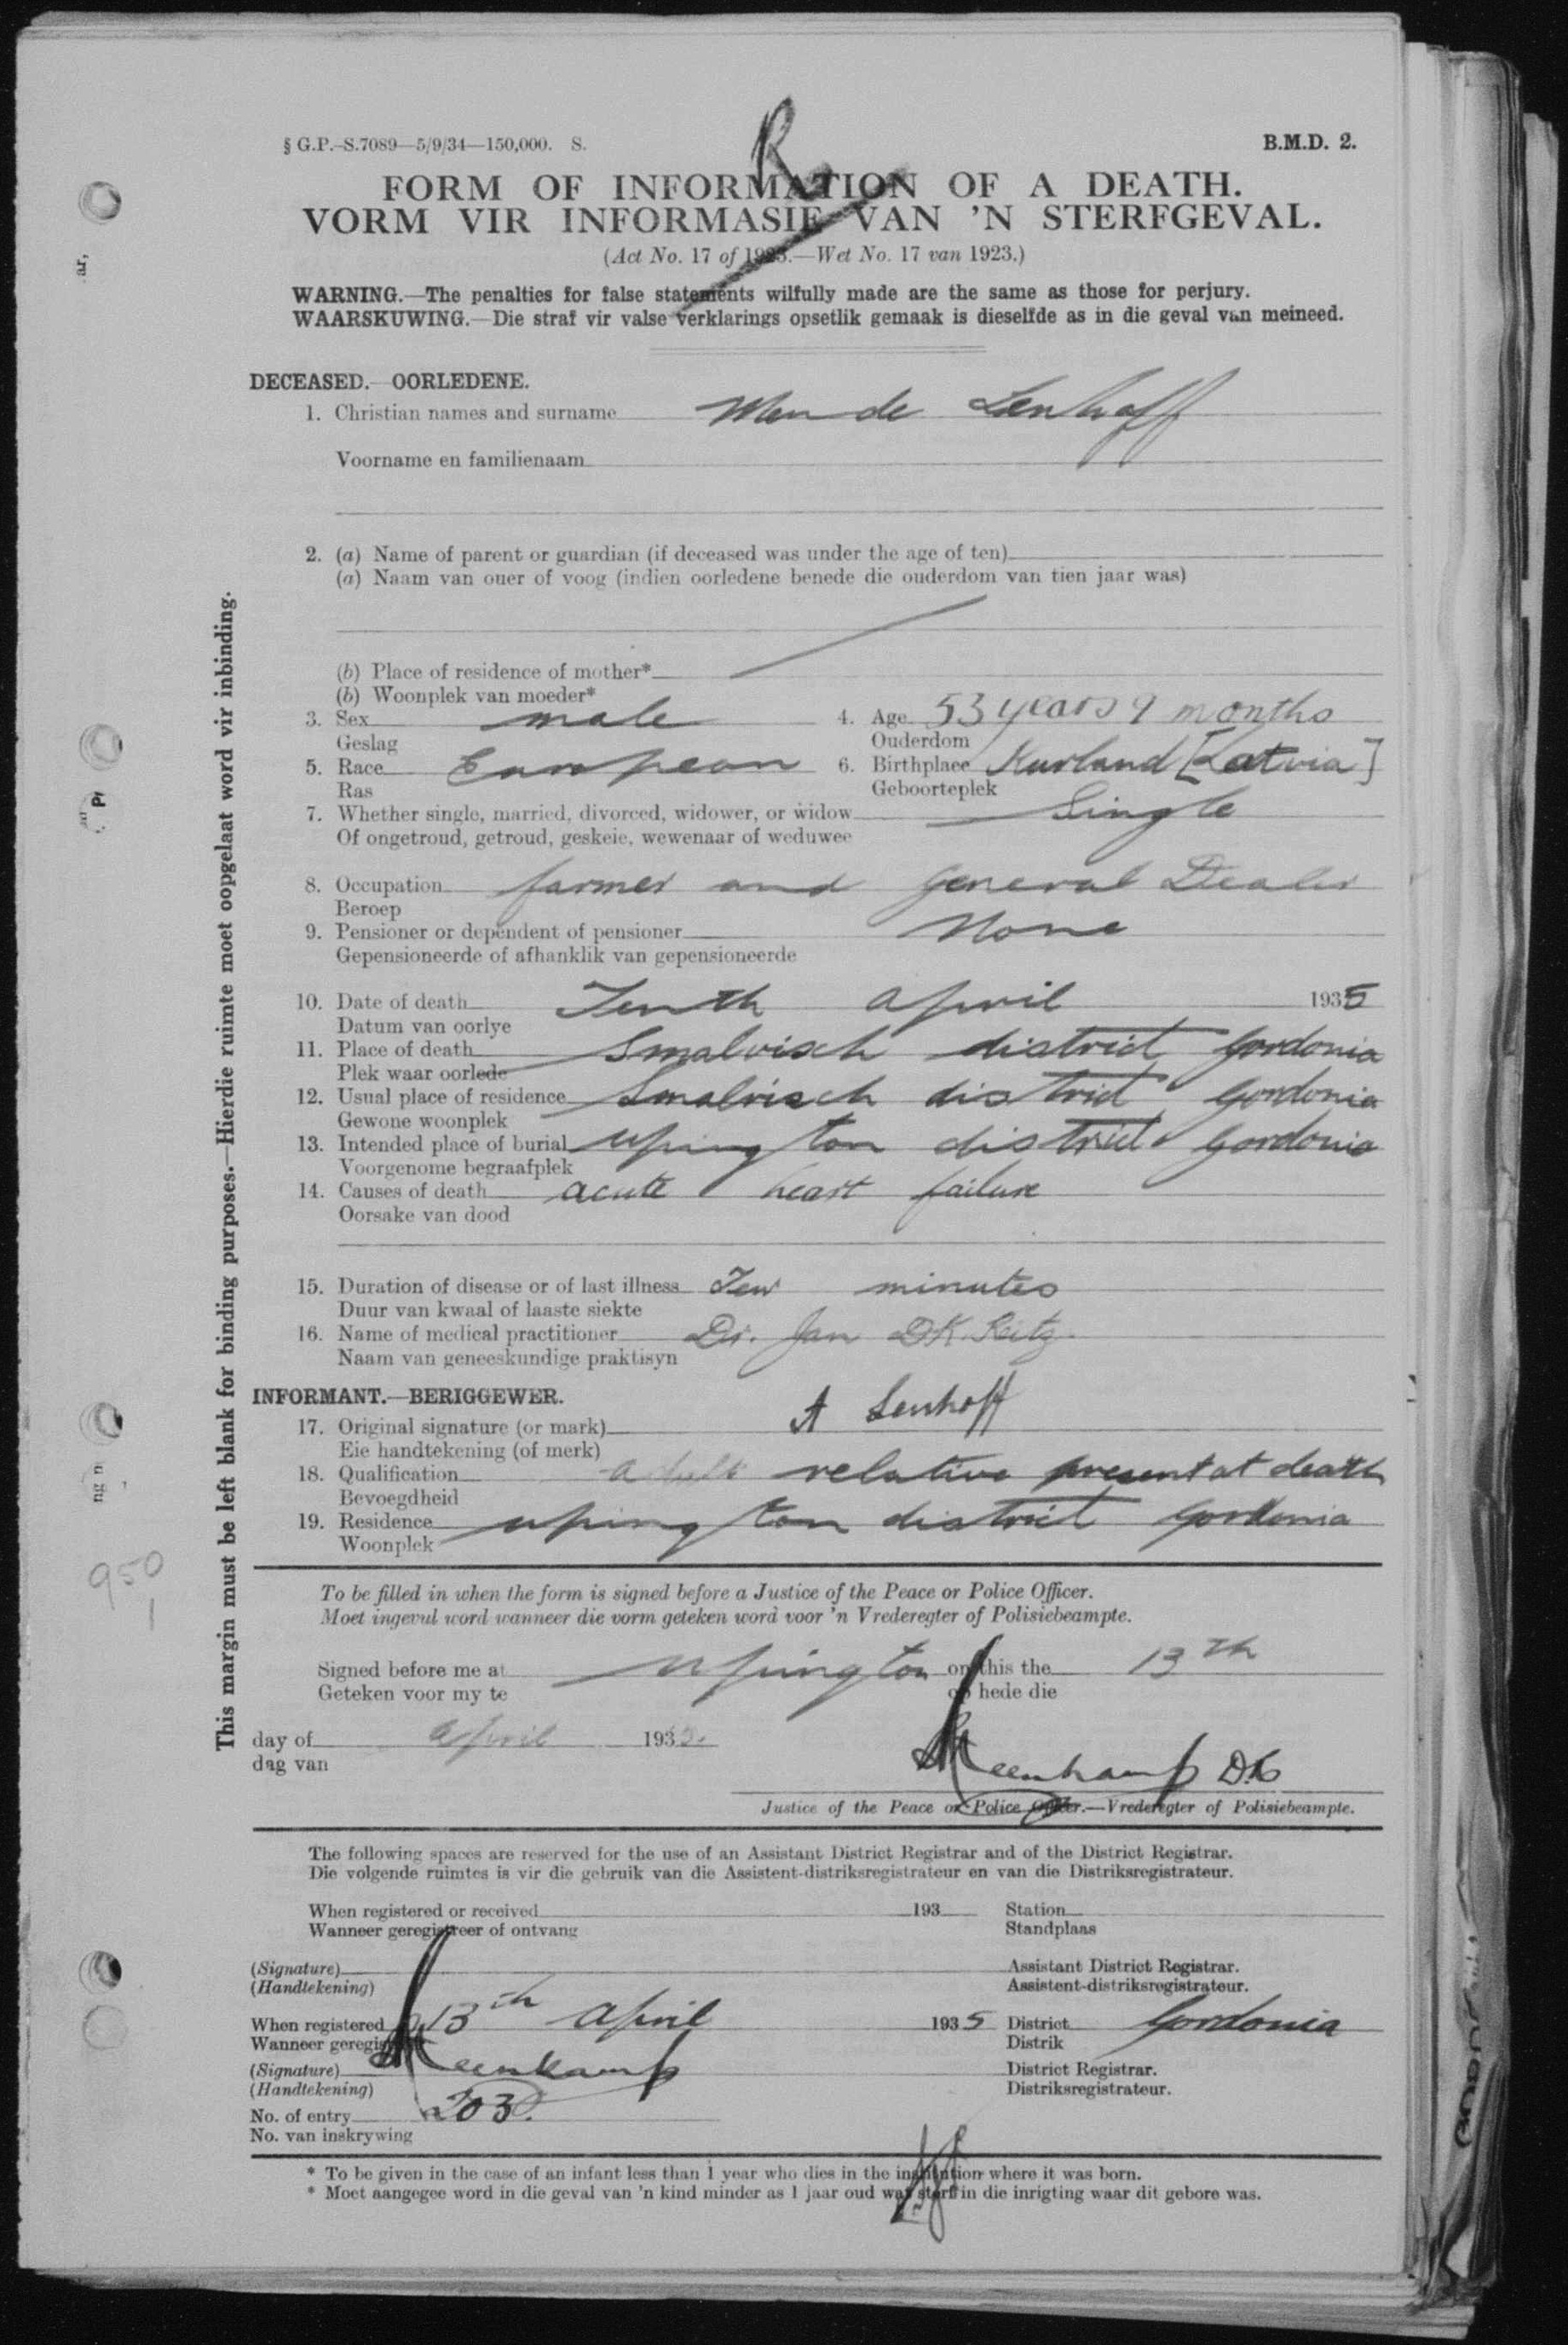 R
§ G.P.-S.7089—5/9/34—150,000. S. B.M.D. 2.
FORM OF INFORMATION OF A DEATH.
VORM VIR INFORMASIE VAN 'N STERFGEVAL.
(Act No. 17 of 1923.—Wet No. 17 van 1923.)
WARNING.—The penalties for false statements wilfully made are the same as those for perjury.
WAARSKUWING.—Die straf vir valse verklarings opsetlik gemaak is dieselfde as in die geval van meineed.
DECEASED.—OORLEDENE.
1. Christian names and surname Mende Lenhoff
Voorname en familienaam
2. (a) Name of parent or guardian (if deceased was under the age of ten)
(a) Naam van ouer of voog (indien oorledene benede die ouderdom van tien jaar was)
(b) Place of residence of mother*
(b) Woonplek van moeder*
3. Sex male 4. Age 53 years 9 months
Geslag Ouderdom
5. Race European 6. Birthplace Kurland [Latvia]
Ras Geboorteplek
7. Whether single, married, divorced, widower, or widow Single
Of ongetroud, getroud, geskeie, wewenaar of weduwee
8. Occupation farmer and General Dealer
Beroep
9. Pensioner or dependent of pensioner None
Gepensioneerde of afhanklik van gepensioneerde
10. Date of death Tenth april 1935
Datum van oorlye
11. Place of death Smalvisch district Gordonia
Plek waar oorlede
12. Usual place of residence Smalvisch district Gordonia
Gewone woonplek
13. Intended place of burial Upington district Gordonia
Voorgenome begraafplek
14. Causes of death acute heart failure
Oorsake van dood
15. Duration of disease or of last illness Few minutes
Duur van kwaal of laaste siekte
16. Name of medical practitioner Dr. Jan D.K. Reitz.
Naam van geneeskundige praktisyn
INFORMANT.—BERIGGEWER.
17. Original signature (or mark) A Lenhoff
Eie handtekening (of merk)
18. Qualification adult relative present at death
Bevoegdheid
19. Residence upington district Gordonia
Woonplek
To be filled in when the form is signed before a Justice of the Peace or Police Officer.
Moet ingevul word wanneer die vorm geteken word voor 'n Vrederegter of Polisiebeampte.
Signed before me at Upington on this the 13th
Geteken voor my te op hede die
day of april 1935.
dag van
Justice of the Peace or Police Officer.—Vrederegter of Polisiebeampte.
The following spaces are reserved for the use of an Assistant District Registrar and of the District Registrar.
Die volgende ruimtes is vir die gebruik van die Assistent-distriksregistrateur en van die Distriksregistrateur.
When registered or received 193 Station
Wanneer geregistreer of ontvang Standplaas
(Signature) Assistant District Registrar.
(Handtekening) Assistent-distriksregistrateur.
When registered 13th april 1935 District Gordonia
Wanneer geregistreer Distrik
(Signature) District Registrar.
(Handtekening) Distriksregistrateur.
No. of entry 203.
No. van inskrywing
* To be given in the case of an infant less than 1 year who dies in the institution where it was born.
* Moet aangegee word in die geval van 'n kind minder as 1 jaar oud wat sterf in die inrigting waar dit gebore was.
This margin must be left blank for binding purposes.—Hierdie ruimte moet oopgelaat word vir inbinding.
ar,
950
1